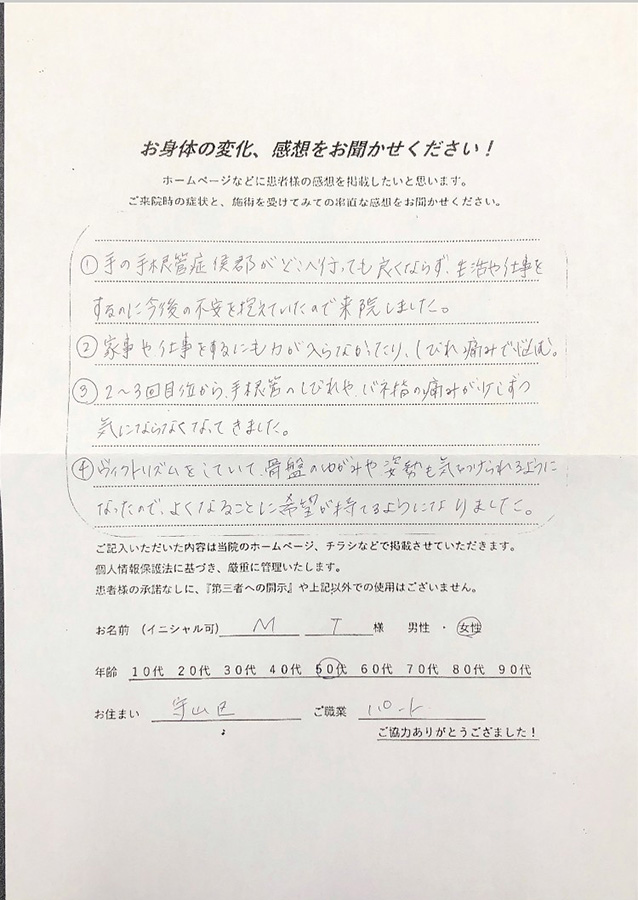 お身体の変化、感想をお聞かせください！
ホームページなどに患者様の感想を掲載したいと思います。
ご来院時の症状と、施術を受けてみての率直な感想をお聞かせください。
①手の手根管症候郡がどこへ行っても良くならず、生活や仕事を
するのに今後の不安を抱えていたので来院しました。
②家事や仕事をするにも力が入らなかったり、しびれ痛みで悩む。
③2〜3回目位から、手根管のしびれや、バネ指の痛みが少しずつ
気にならなくなってきました。
④ヴィクトリズムをしていて、骨盤のゆがみや姿勢も気をつけられるように
なったので、よくなることに希望が持てるようになりました。
ご記入いただいた内容は当院のホームページ、チラシなどで掲載させていただきます。
個人情報保護法に基づき、厳重に管理いたします。
患者様の承諾なしに、『第三者への開示』や上記以外での使用はございません。
お名前 （イニシャル可） M T 様 男性 ・ 女性
年齢 10代 20代 30代 40代 50代 60代 70代 80代 90代
お住まい 守山区 ご職業 パート
ご協力ありがとうござました！